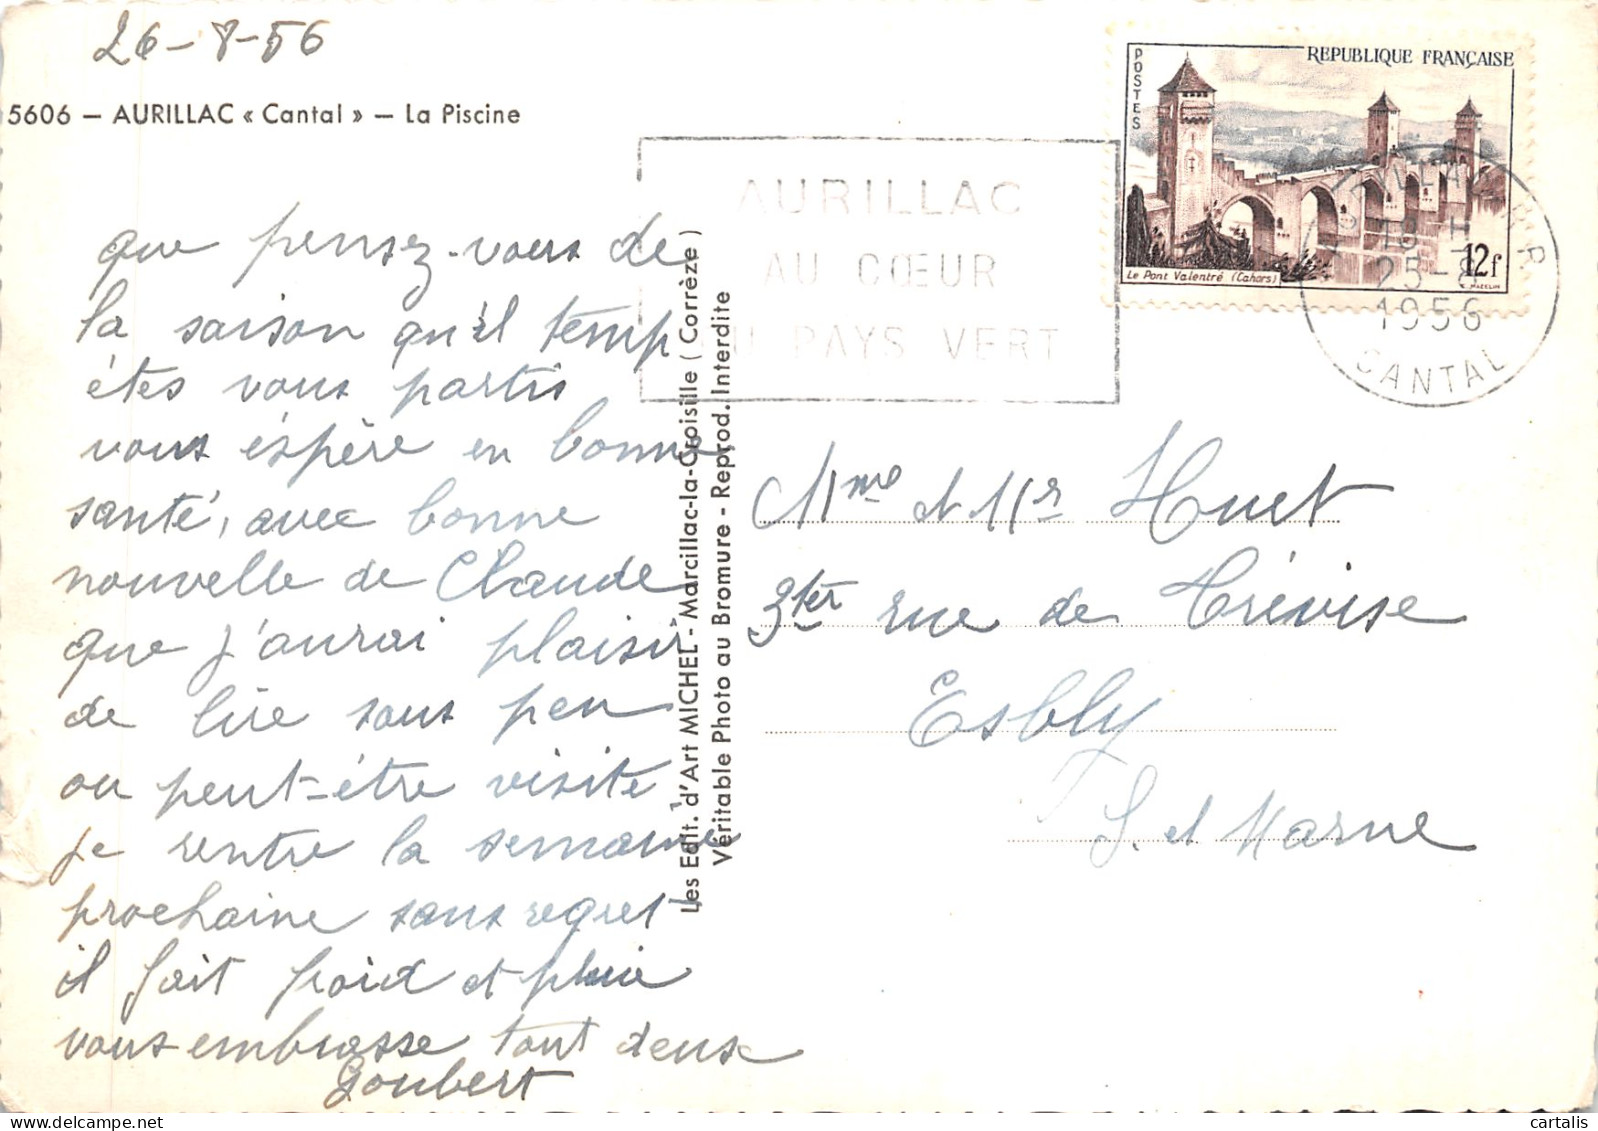 26-8-56
5606 — AURILLAC « Cantal » — La Piscine
que pensez-vous de
la saison qu'il temp
étes vous partis
vous éspère en bonne
santé, avec bonne
nouvelle de Claude
que j'aurai plaisir
de lire sous peu
ou peut-être visite
je rentre la semaine
prochaine sans regret
il fait froid et pluie
vous embrasse tout deux
Goubert
Les Edit. d'Art MICHEL - Marcillac-la-Croisille (Corrèze)
Véritable Photo au Bromure - Reprod. Interdite
AURILLAC
AU CŒUR
DU PAYS VERT
POSTES
REPUBLIQUE FRANÇAISE
Le Pont Valentré (Cahors)
12f
AURILLAC R.P.
18 H
25-8
1956
CANTAL
Mme et Mr Huet
3ter rue de Trévise
Esbly
S. et Marne
cartalis